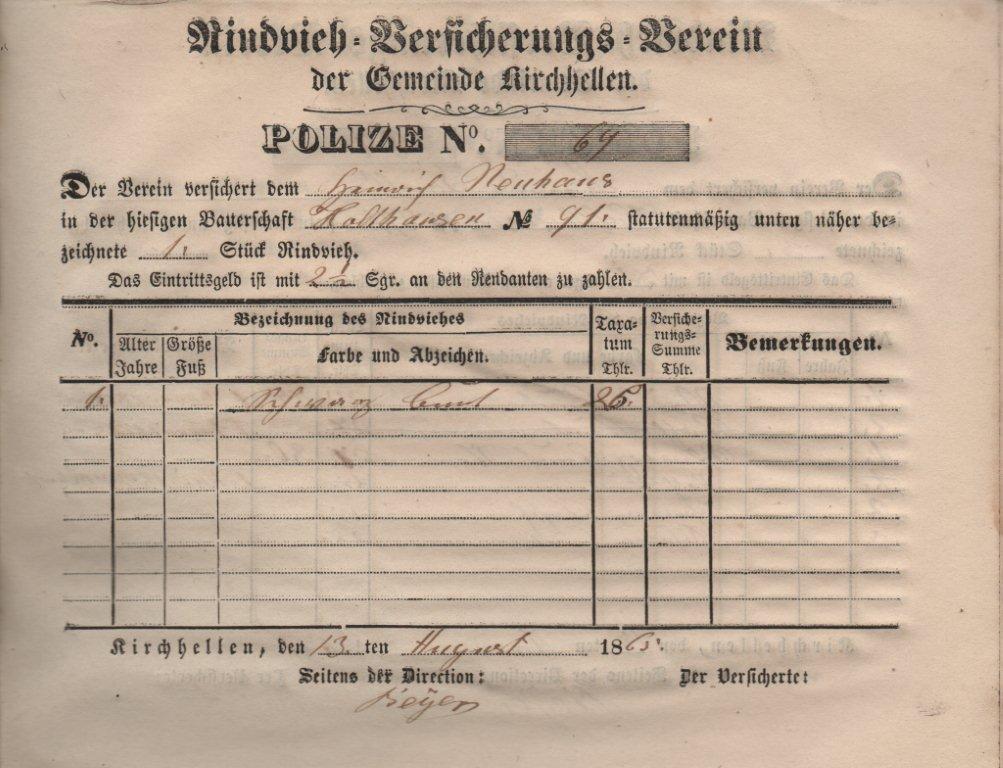 Rindvieh-Versicherungs-Verein
der Gemeinde Kirchhellen.
POLIZE No. 69
Der Verein versichert dem Heinrich Neuhaus
in der hiesigen Bauerschaft Holthausen No 91. statutenmäßig unten näher be-
zeichnete 1. Stück Rindvieh.
Das Eintrittsgeld ist mit 2½ Sgr. an den Rendanten zu zahlen.
No. Bezeichnung des Rindviehes Taxa-tum Thlr. Versiche-rungs-Summe Thlr. Bemerkungen.
Alter Jahre Größe Fuß Farbe und Abzeichen.
1. Schwarz bunt 26.
Kirchhellen, den 13 ten August 186
Seitens der Direction: Der Versicherte: